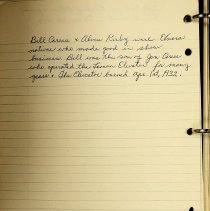 Bill Carss & Alma Kirby were Elnora
natives who made good in show
business. Bill was the son of Joe Carss
who operated the Elevator for many
years. The Elevator burned Apr. 1st, 1932.